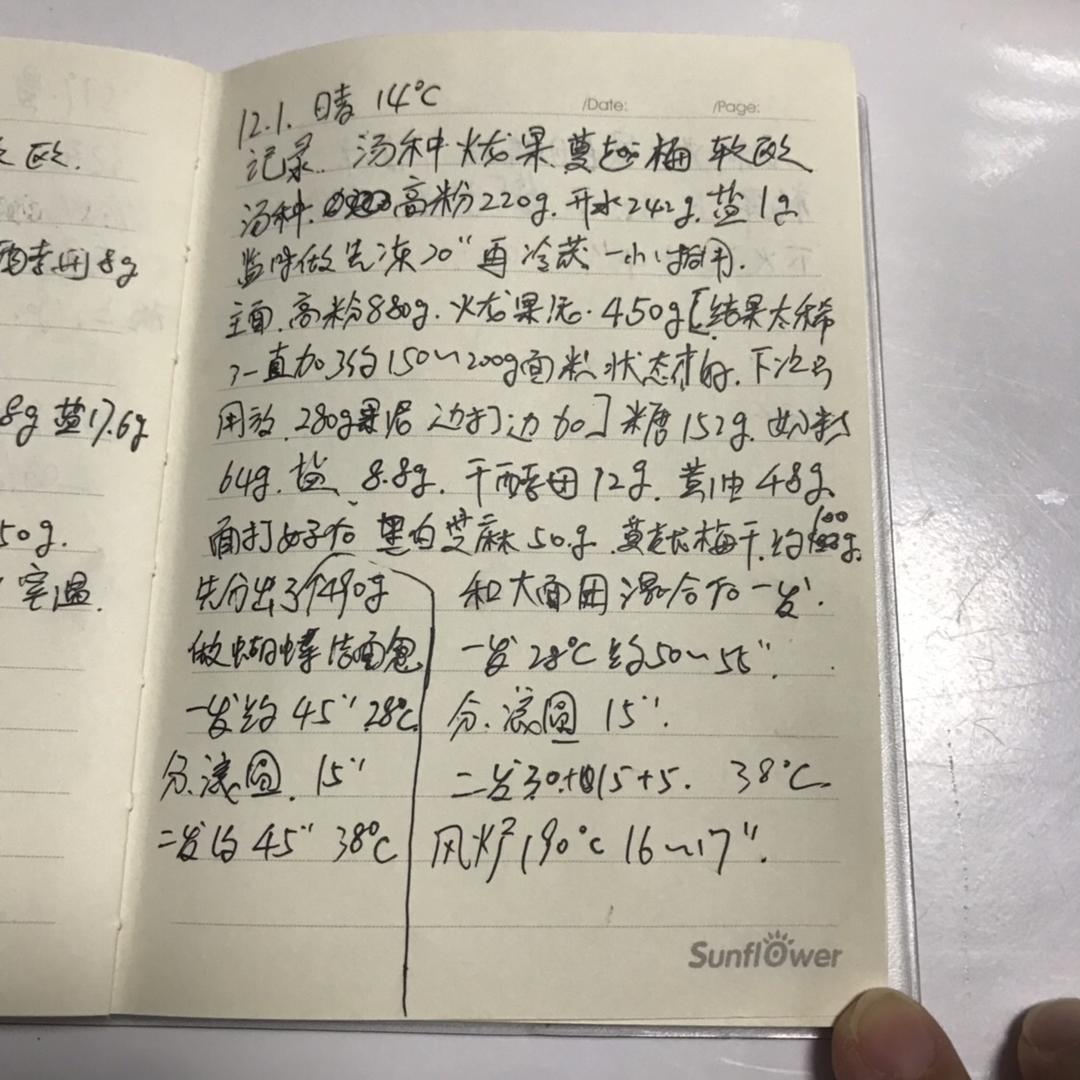 12.1. 晴 14°C
/Date: /Page:
记录. 汤种火龙果蔓越梅软欧
汤种. 高粉220g. 开水242g. 盐1g
临时做先冻20" 再冷藏一小时用.
主面. 高粉880g. 火龙果泥. 450g [结果太稀
了一直加了约150~200g面粉状态才好. 下次
用放. 280g果泥 边打边加] 米唐 152g. 奶粉
64g. 盐 8.8g. 干酵母12g. 黄油48g.
面打好后 黑白芝麻50g. 蔓越梅干. 约100g.
先分出了个490g
做蝴蝶结面包
一发约 45" 28°C
分. 滚圆. 15"
二发约 45" 38°C
和大面团混合后一发.
一发28°C约50~55".
分. 滚圆 15".
二发30+15+5. 38°C
风炉190°C 16~17".
Sunflower
欧.
酵母用8g
8g 盐17.6g
50g.
室温.